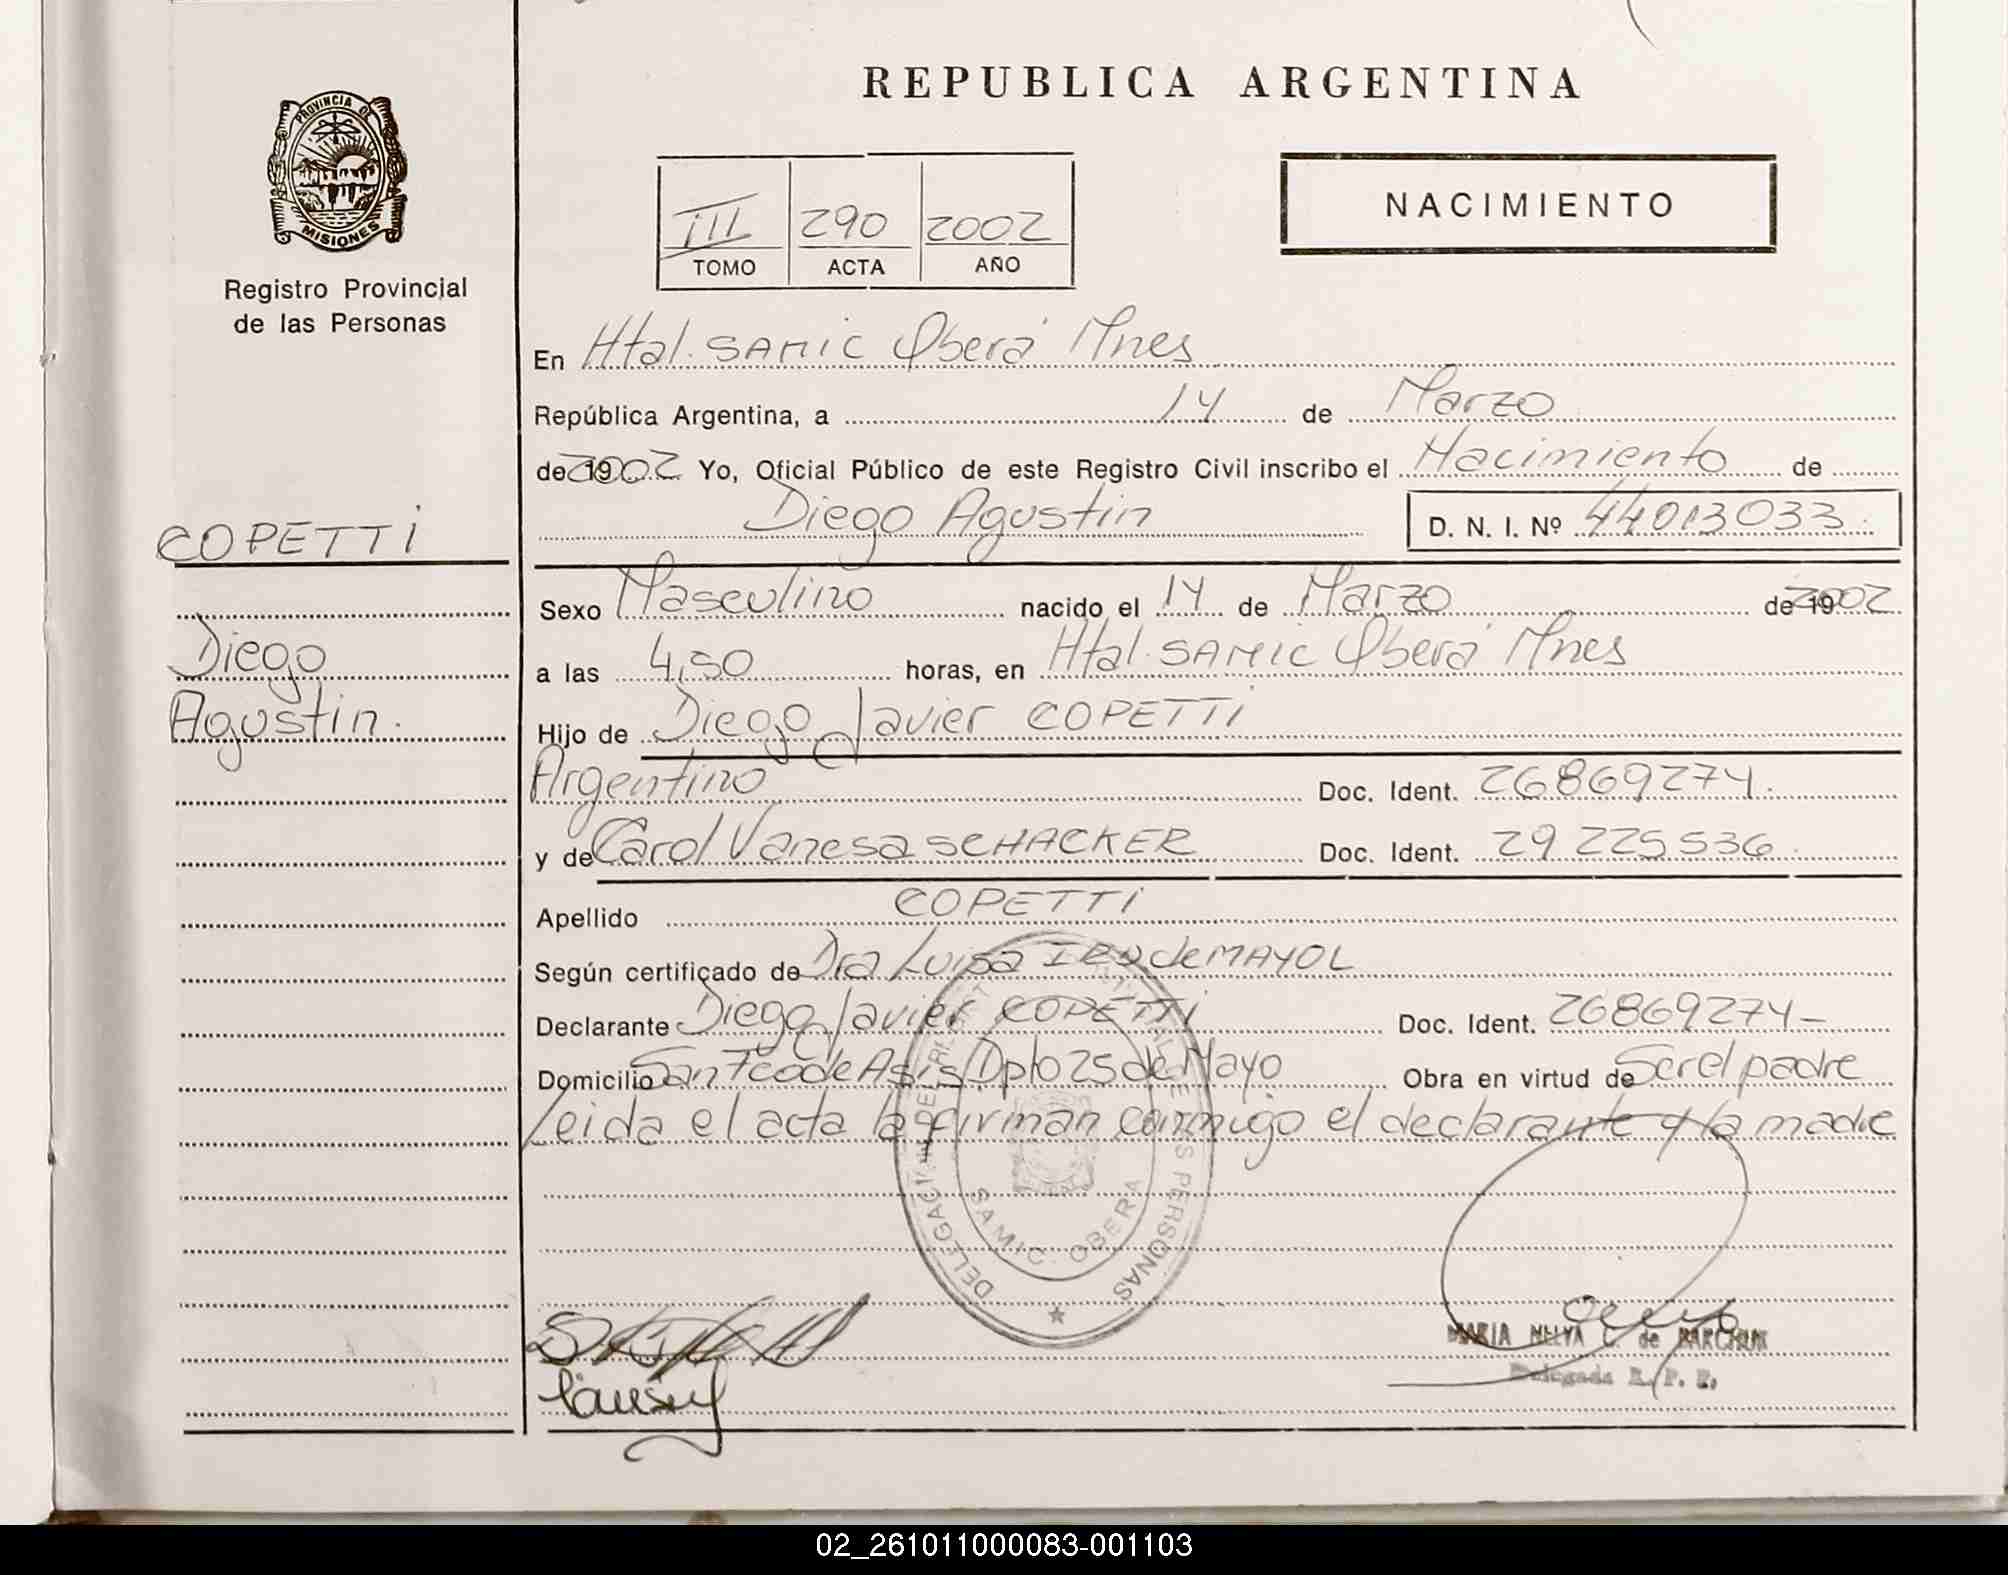 REPUBLICA ARGENTINA
PROVINCIA DE
MISIONES
Registro Provincial
de las Personas
III 290 2002
TOMO ACTA AÑO
NACIMIENTO
En Htal. SAMIC Oberá Mnes
República Argentina, a 14 de Marzo
de 2002 Yo, Oficial Público de este Registro Civil inscribo el Nacimiento de
Diego Agustin D. N. I. Nº 44013033.
COPETTI
Diego
Agustin.
Sexo Masculino nacido el 14 de Marzo de 2002
a las 4,50 horas, en Htal. SAMIC Oberá Mnes
Hijo de Diego Javier COPETTI
Argentino Doc. Ident. 26869274.
y de Carol Vanesa SCHACKER Doc. Ident. 29 225 536.
Apellido COPETTI
Según certificado de Dra Luisa de MAYOL
Declarante Diego Javier COPETTI Doc. Ident. 26869274-
Domicilio San Fco de Asis Dpto 25 de Mayo Obra en virtud de Ser el padre
Leida el acta la firman conmigo el declarante y la madre
DELEGACION DEL REGISTRO PROVINCIAL DE LAS PERSONAS
SAMIC. OBERA
MARIA C. de
Delegada R. P. P.
02_261011000083-001103